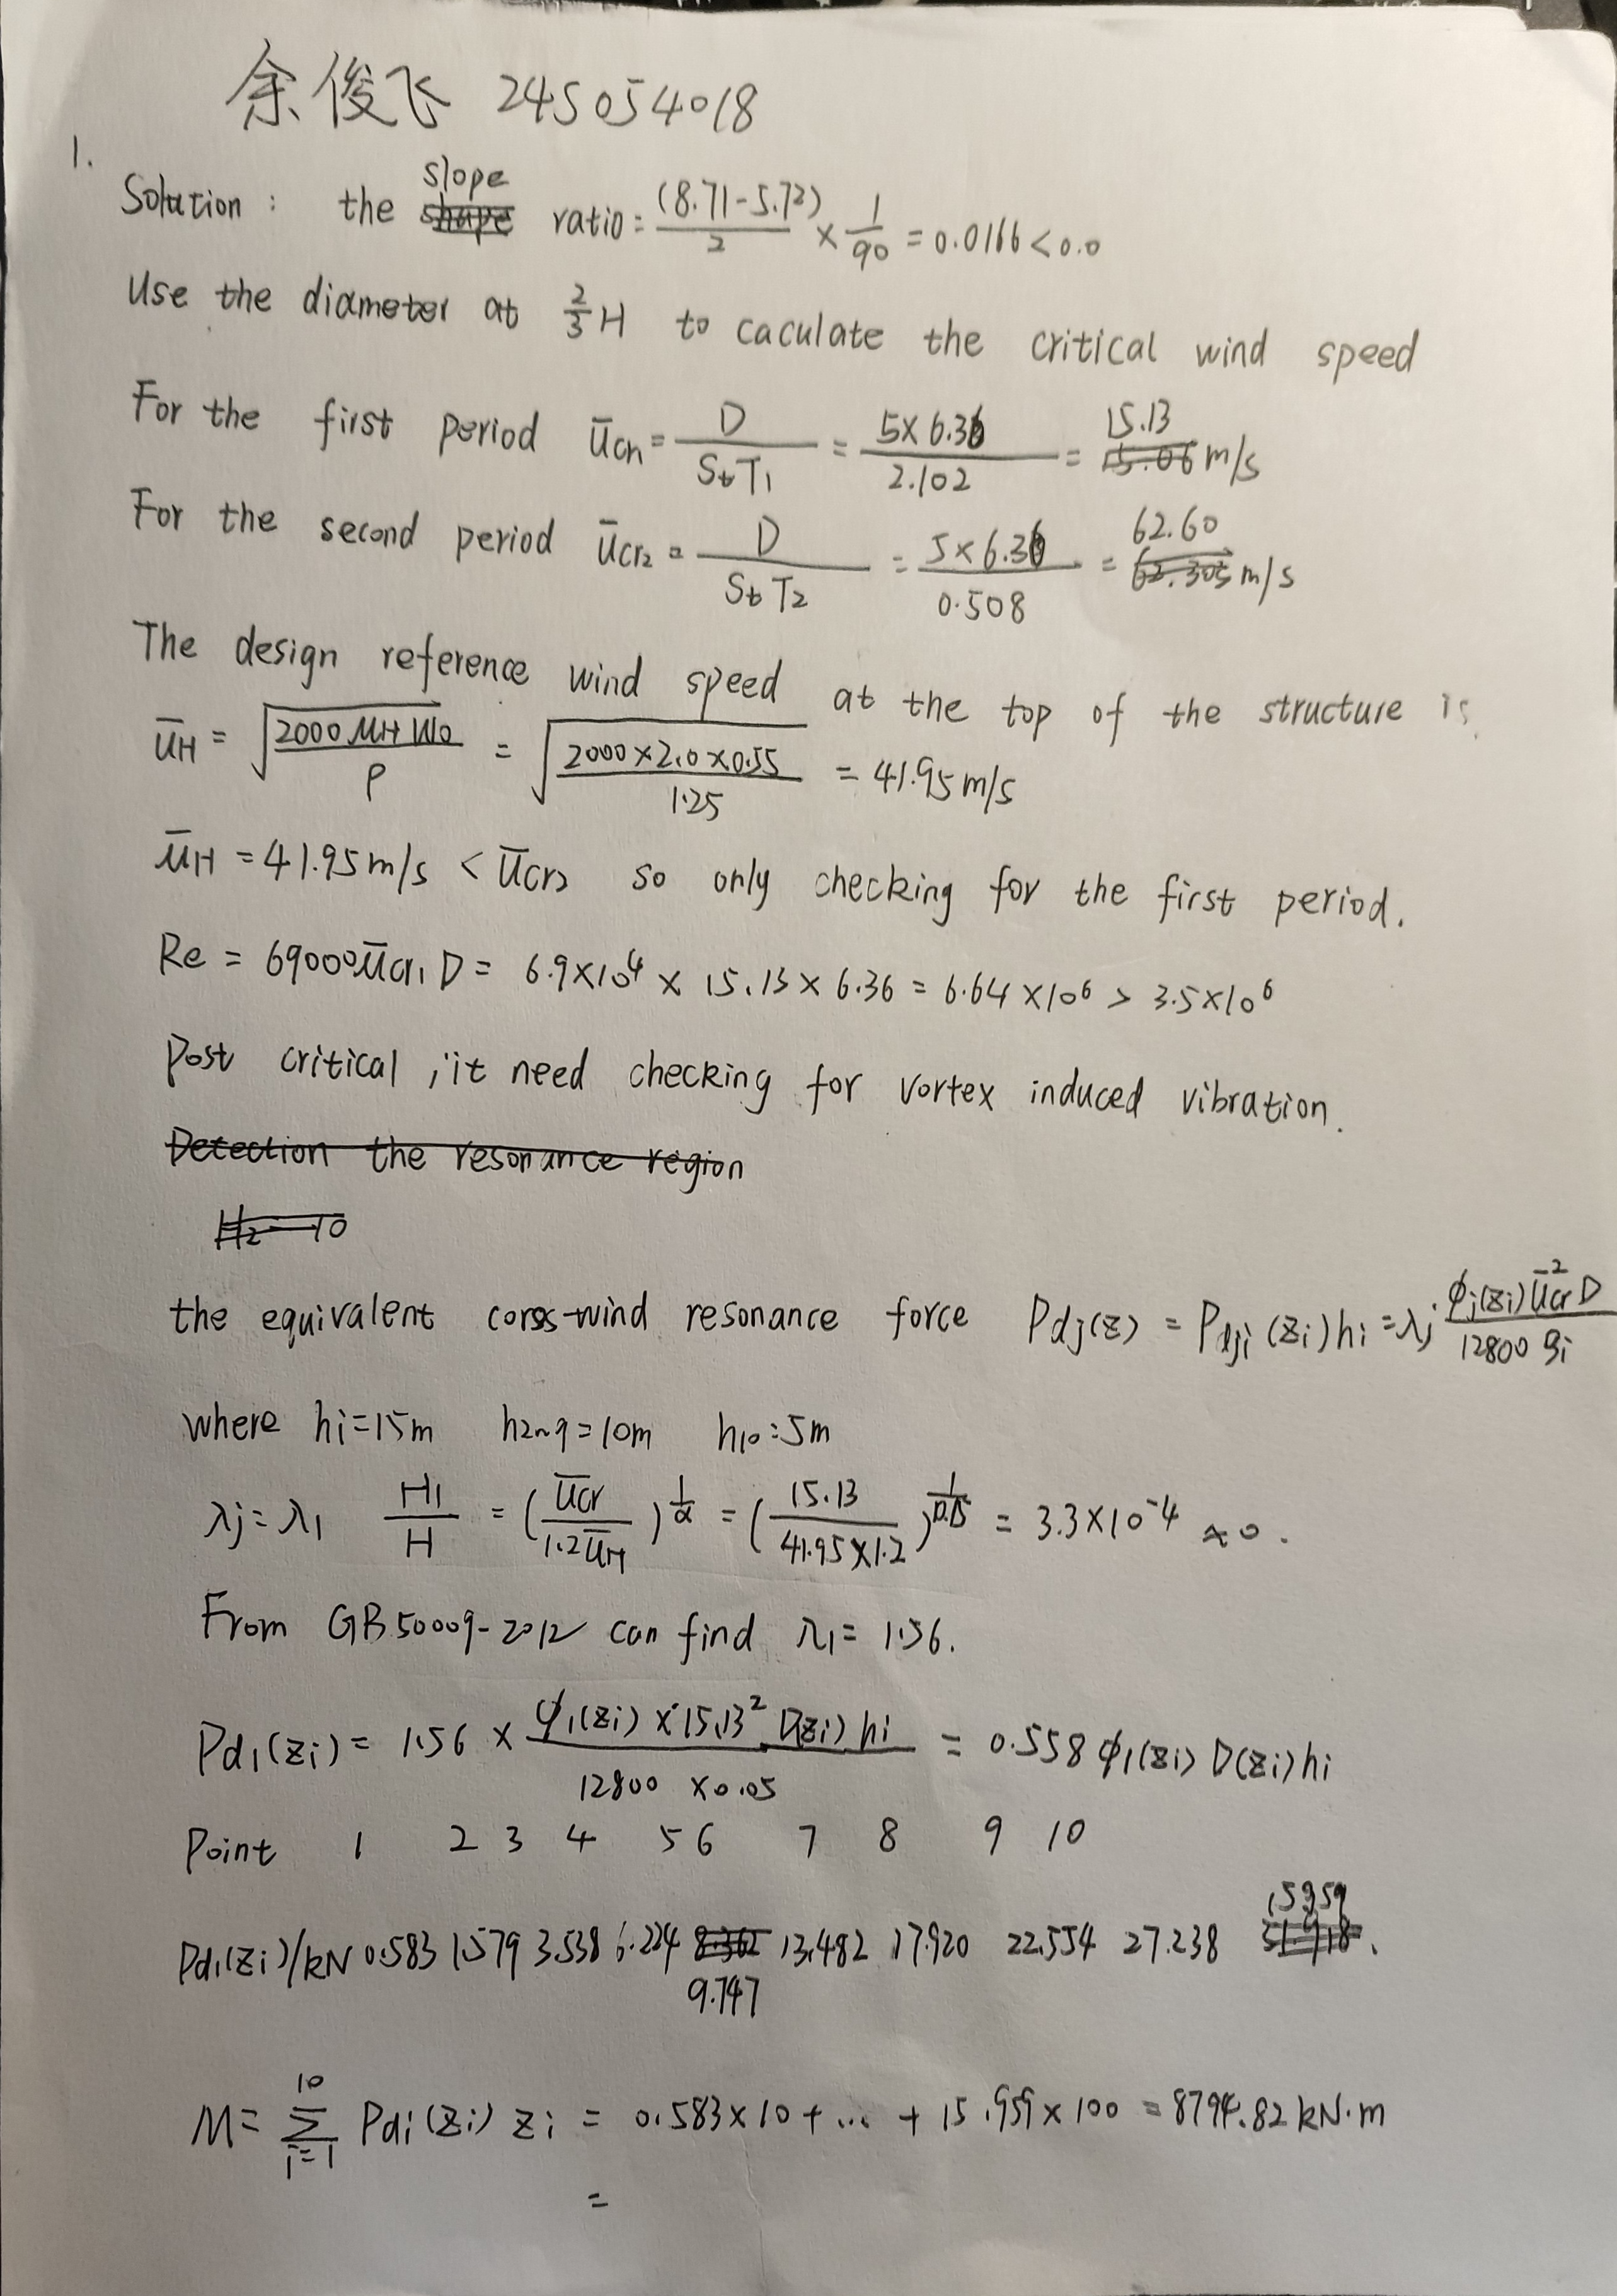 余俊飞 245054018
1.
Solution: the slope ratio = (8.71-5.72)/2 × 1/90 = 0.0166 < 0.0
Use the diameter at 2/3 H to caculate the critical wind speed
For the first period ūcr1 = D/(StT1) = 5×6.36/2.102 = 15.13 m/s
For the second period ūcr2 = D/(StT2) = 5×6.36/0.508 = 62.60 m/s
The design reference wind speed at the top of the structure is
ūH = √(2000μHW0/ρ) = √(2000×2.0×0.55/1.25) = 41.95m/s
ūH = 41.95m/s < ūcr2 so only checking for the first period.
Re = 69000ūcr1D = 6.9×10⁴ × 15.13 × 6.36 = 6.64×10⁶ > 3.5×10⁶
Post critical, it need checking for vortex induced vibration.
Detection the resonance region
H2 = 10
the equivalent corss-wind resonance force Pdj(z) = Pdji(zi)hi = λj ϕj(zi)ūcr²D/(12800 ζi)
where hi=15m h2~9=10m h10=5m
λj=λ1 H1/H = (ūcr/(1.2ūH))^(1/α) = (15.13/(41.95×1.2))^(1/0.15) = 3.3×10⁻⁴ ≈ 0.
From GB50009-2012 can find λ1 = 1.56.
Pd1(zi) = 1.56 × ϕ1(zi)×15.13² D(zi)hi/(12800 ×0.05) = 0.558 ϕ1(zi) D(zi)hi
Point 1 2 3 4 5 6 7 8 9 10
Pd1(zi)/kN 0.583 1.579 3.538 6.224 9.747 13.482 17.920 22.554 27.238 15.959
M = Σ(i=1→10) Pdi(zi) zi = 0.583×10+...+15.959×100 = 8794.82kN·m
=